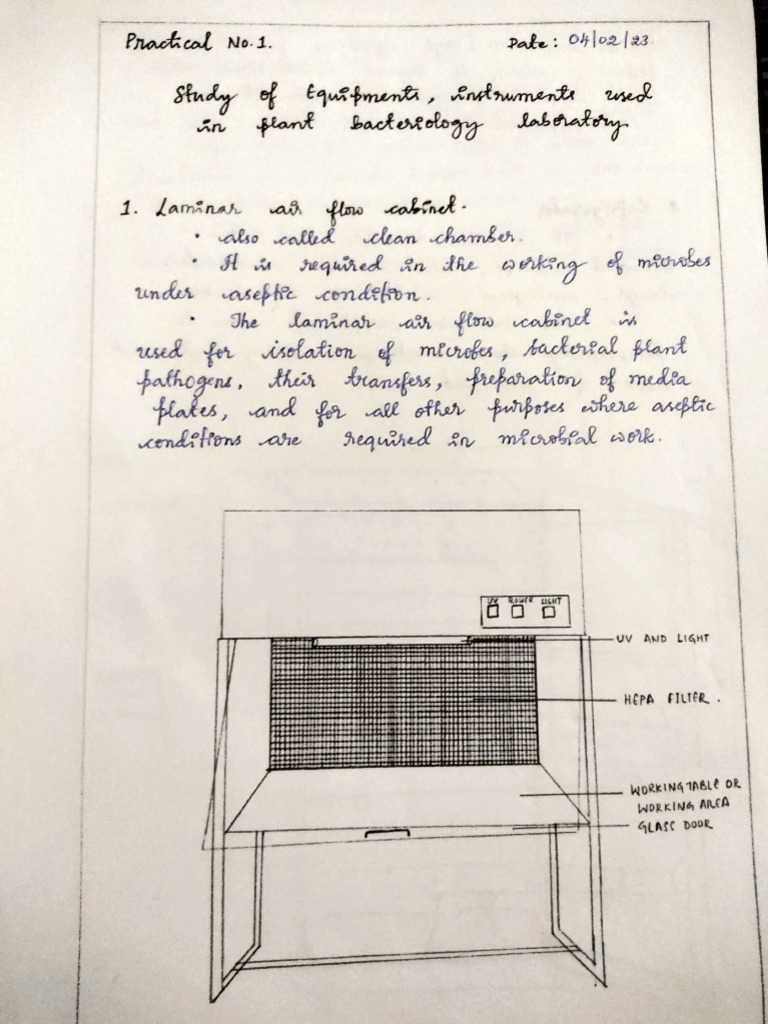 Practical No. 1.
Date: 04/02/23.
Study of Equipments, instruments used
in plant bacteriology laboratory
1. Laminar air flow cabinet.
• also called clean chamber.
• It is required in the working of microbes
under aseptic condition.
• The laminar air flow cabinet is
used for isolation of microbes, bacterial plant
pathogens, their transfers, preparation of media
plates, and for all other purposes where aseptic
conditions are required in microbial work.
UV POWER LIGHT
UV AND LIGHT
HEPA FILTER.
WORKING TABLE OR
WORKING AREA
GLASS DOOR